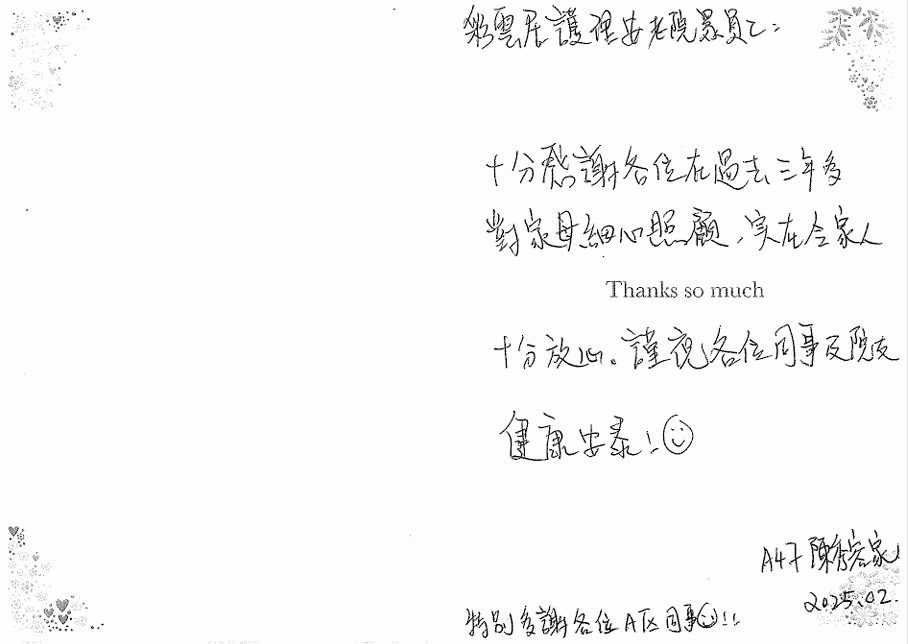 彩雲居護理安老院眾員工:
十分感謝各位在過去三年多
對家母細心照顧,实在令家人
Thanks so much
十分放心。謹祝各位同事及院友
健康安泰!☺
A47 陳秀容家人
2025.02.
特别多謝各位A区同事☺!!